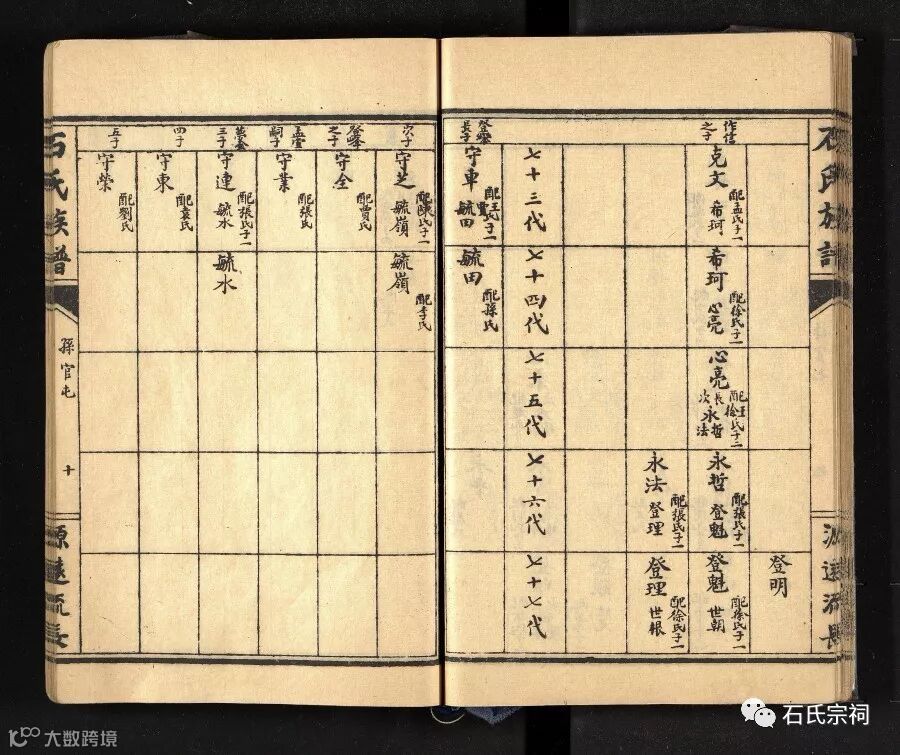 石氏族譜
源遠流長
登明
作信之子
克文 配孟氏子一 希珂
希珂 配徐氏子一 心亮
心亮 配王徐氏子二 長永哲 次永法
永哲 配張氏子一 登魁
登魁 配徐氏子一 世朝
永法 配張氏子一 登理
登理 配徐氏子一 世根
七十三代
七十四代
七十五代
七十六代
七十七代
長子
守車 毓田
毓田 配孫氏
次子
守芝 配陳氏子一 毓嶺
毓嶺 配李氏
登峰之子
守全 配賈氏
嗣子
守業 配張氏
三子
守連 配張氏子一 毓水
毓水
四子
守東 配袁氏
五子
守榮 配劉氏
石氏族譜
孫官屯
十
源遠流長
石氏宗祠
大数跨境